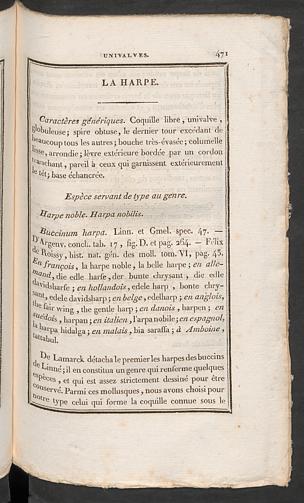 UNIVALVES. 471
LA HARPE.
Caractères génériques. Coquille libre, univalve,
globuleuse; spire obtuse, le dernier tour excédant de
beaucoup tous les autres; bouche très-évasée; columelle
lisse, arrondie; lèvre extérieure bordée par un cordon
tranchant, pareil à ceux qui garnissent extérieurement
le têt; base échancrée.
Espèce servant de type au genre.
Harpe noble. Harpa nobilis.
Buccinum harpa. Linn. et Gmel. spec. 47. —
D'Argenv. conch. tab. 17, fig. D. et pag. 264. — Félix
de Roissy, hist. nat. gén. des moll. tom. VI, pag. 43.
En françois, la harpe noble, la belle harpe; en alle-
mand, die edle harfe, der bunte chrysant, die edle
davidsharfe; en hollandois, edele harp, bonte chry-
sant, edele davidsharp; en belge, edelharp; en anglois,
the fair wing, the gentle harp; en danois, harpen; en
suédois, harpan; en italien, l'arpa nobile; en espagnol,
la harpa hidalga; en malais, bia sarassa; à Amboine,
tattabul.
De Lamarck détacha le premier les harpes des buccins
de Linné; il en constitua un genre qui renferme quelques
espèces, et qui est assez strictement dessiné pour être
conservé. Parmi ces mollusques, nous avons choisi pour
notre type celui qui forme la coquille connue sous le